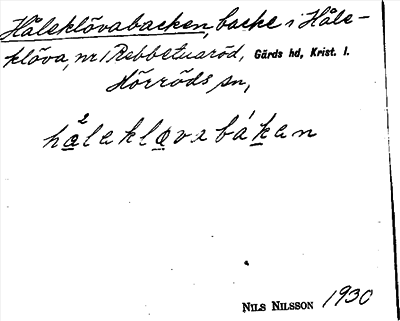 Håleklövabacken, backe i Håle-
klöva, nr 1 Rebbetuaröd, Gärds hd, Krist. l.
Hörröds sn,
hålekløvabáken
NILS NILSSON 1930